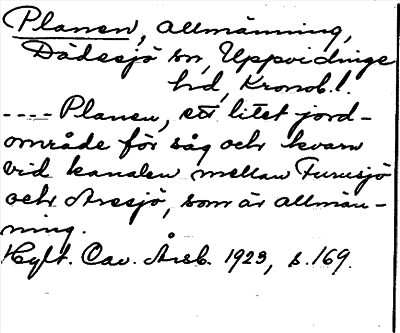 Plansen, allmänning,
Dädesjö sn, Uppvidinge
hd, Kronob. l.
---- Plansen, ett litet jord-
område för såg och kvarn
vid kanalen mellan Furusjö
och Årssjö, som är allmän-
ning.
Hylt. Cav. Årsb. 1923, s. 169.